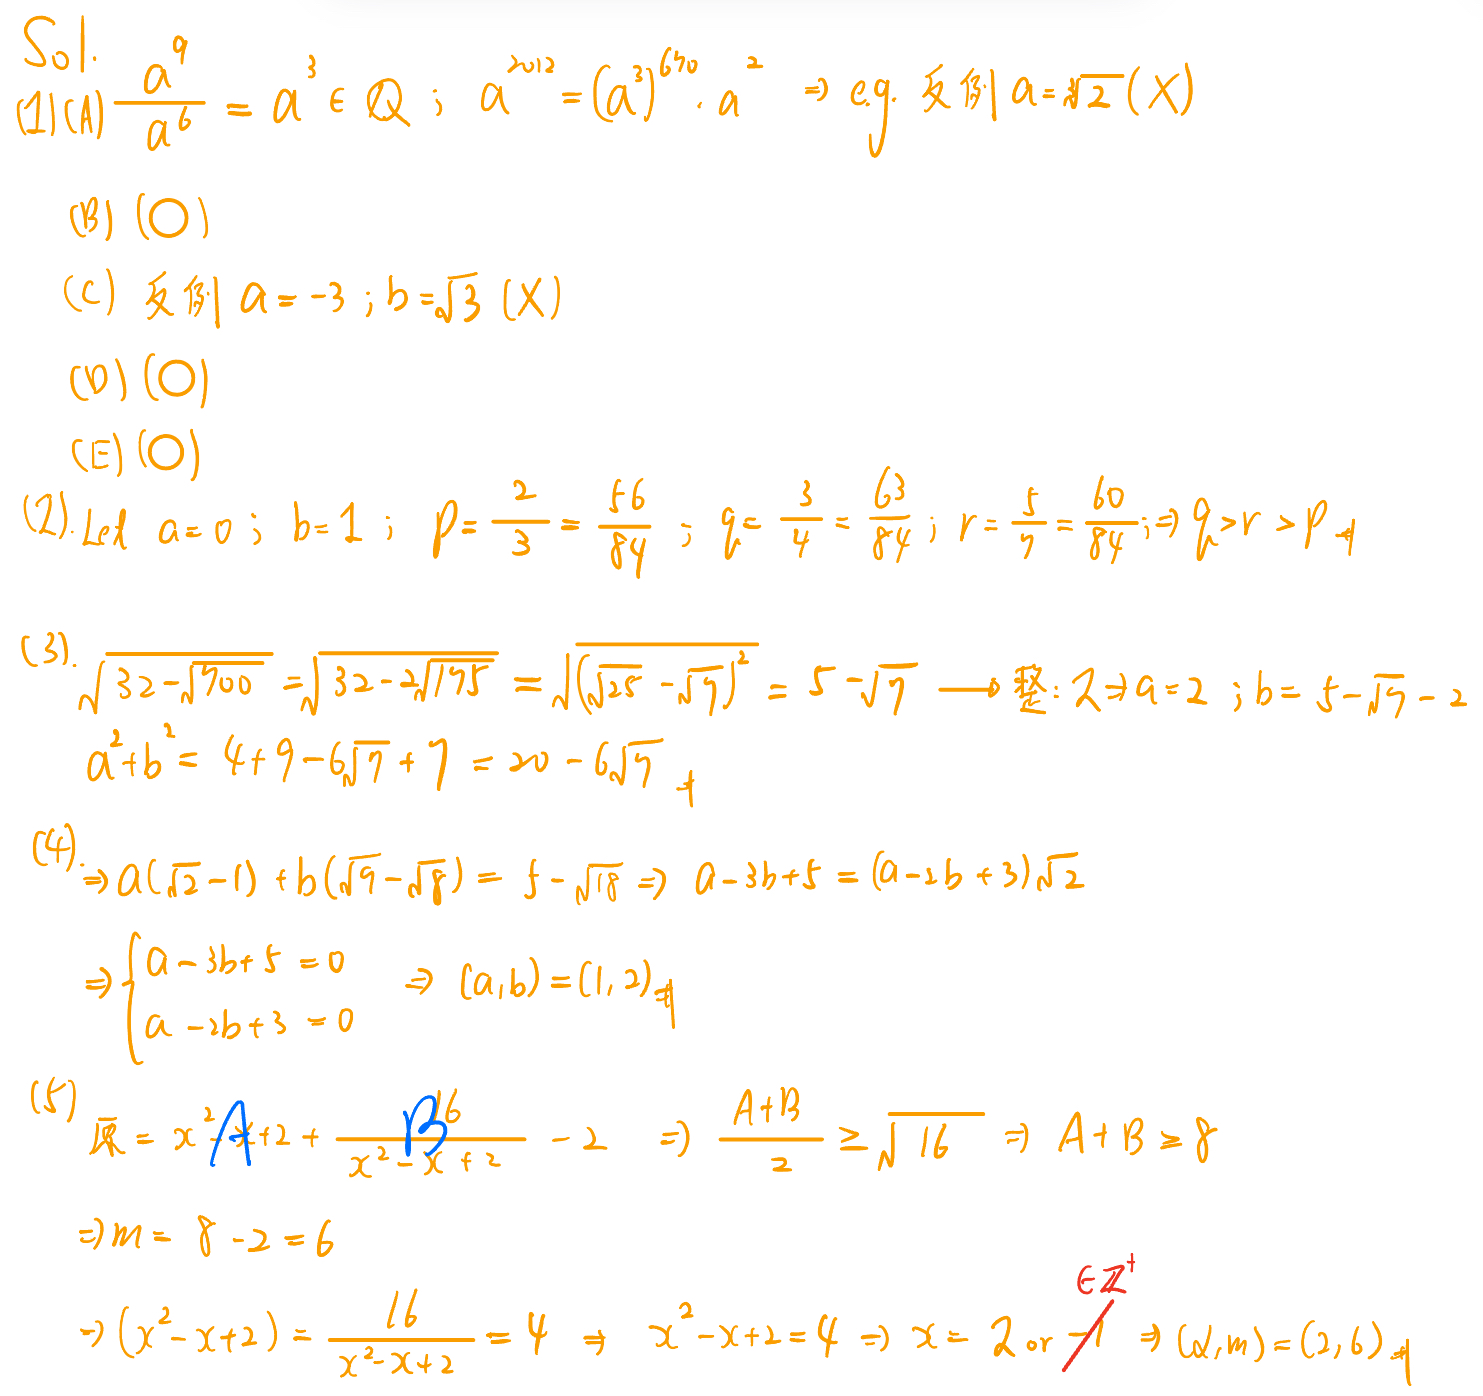 Sol.
(1)(A) a⁹/a⁶ = a³ ∈ Q ; a²⁰¹² = (a³)⁶⁷⁰ · a² ⇒ e.g. 反例 a = ∛2 (X)
(B) (○)
(C) 反例 a = -3 ; b = √3 (X)
(D) (○)
(E) (○)
(2). Let a = 0 ; b = 1 ; p = 2/3 = 56/84 ; q = 3/4 = 63/84 ; r = 5/7 = 60/84 ; ⇒ q > r > p
(3). √(32-√700) = √(32-2√175) = √((√25-√7)²) = 5-√7 → 整: 2 ⇒ a = 2 ; b = 5-√7-2
a²+b² = 4+9-6√7+7 = 20-6√7
(4).
⇒ a(√2-1) + b(√9-√8) = 5-√18 ⇒ a-3b+5 = (a-2b+3)√2
⇒ { a-3b+5 = 0 ⇒ (a,b) = (1,2)
a-2b+3 = 0
(5)
原 = x²-x+2 + 16/(x²-x+2) - 2 ⇒ (A+B)/2 ≥ √16 ⇒ A+B ≥ 8
A B
⇒ m = 8-2 = 6
∈ Z⁺
⇒ (x²-x+2) = 16/(x²-x+2) = 4 ⇒ x²-x+2 = 4 ⇒ x = 2 or -1 ⇒ (α,m) = (2,6)